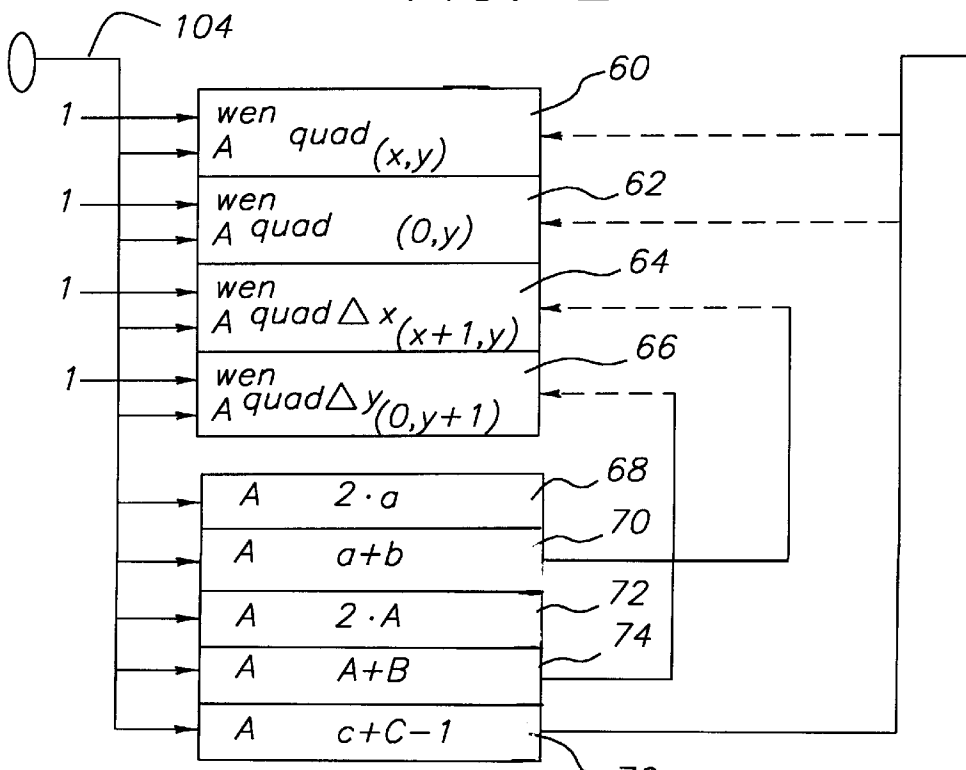 104
60
1 wen
A quad (x,y)
62
1 wen
A quad (0,y)
64
1 wen
A quad Δ x (x+1,y)
66
1 wen
A quad Δ y (0,y+1)
68
A 2·a
70
A a+b
72
A 2·A
74
A A+B
A c+C-1